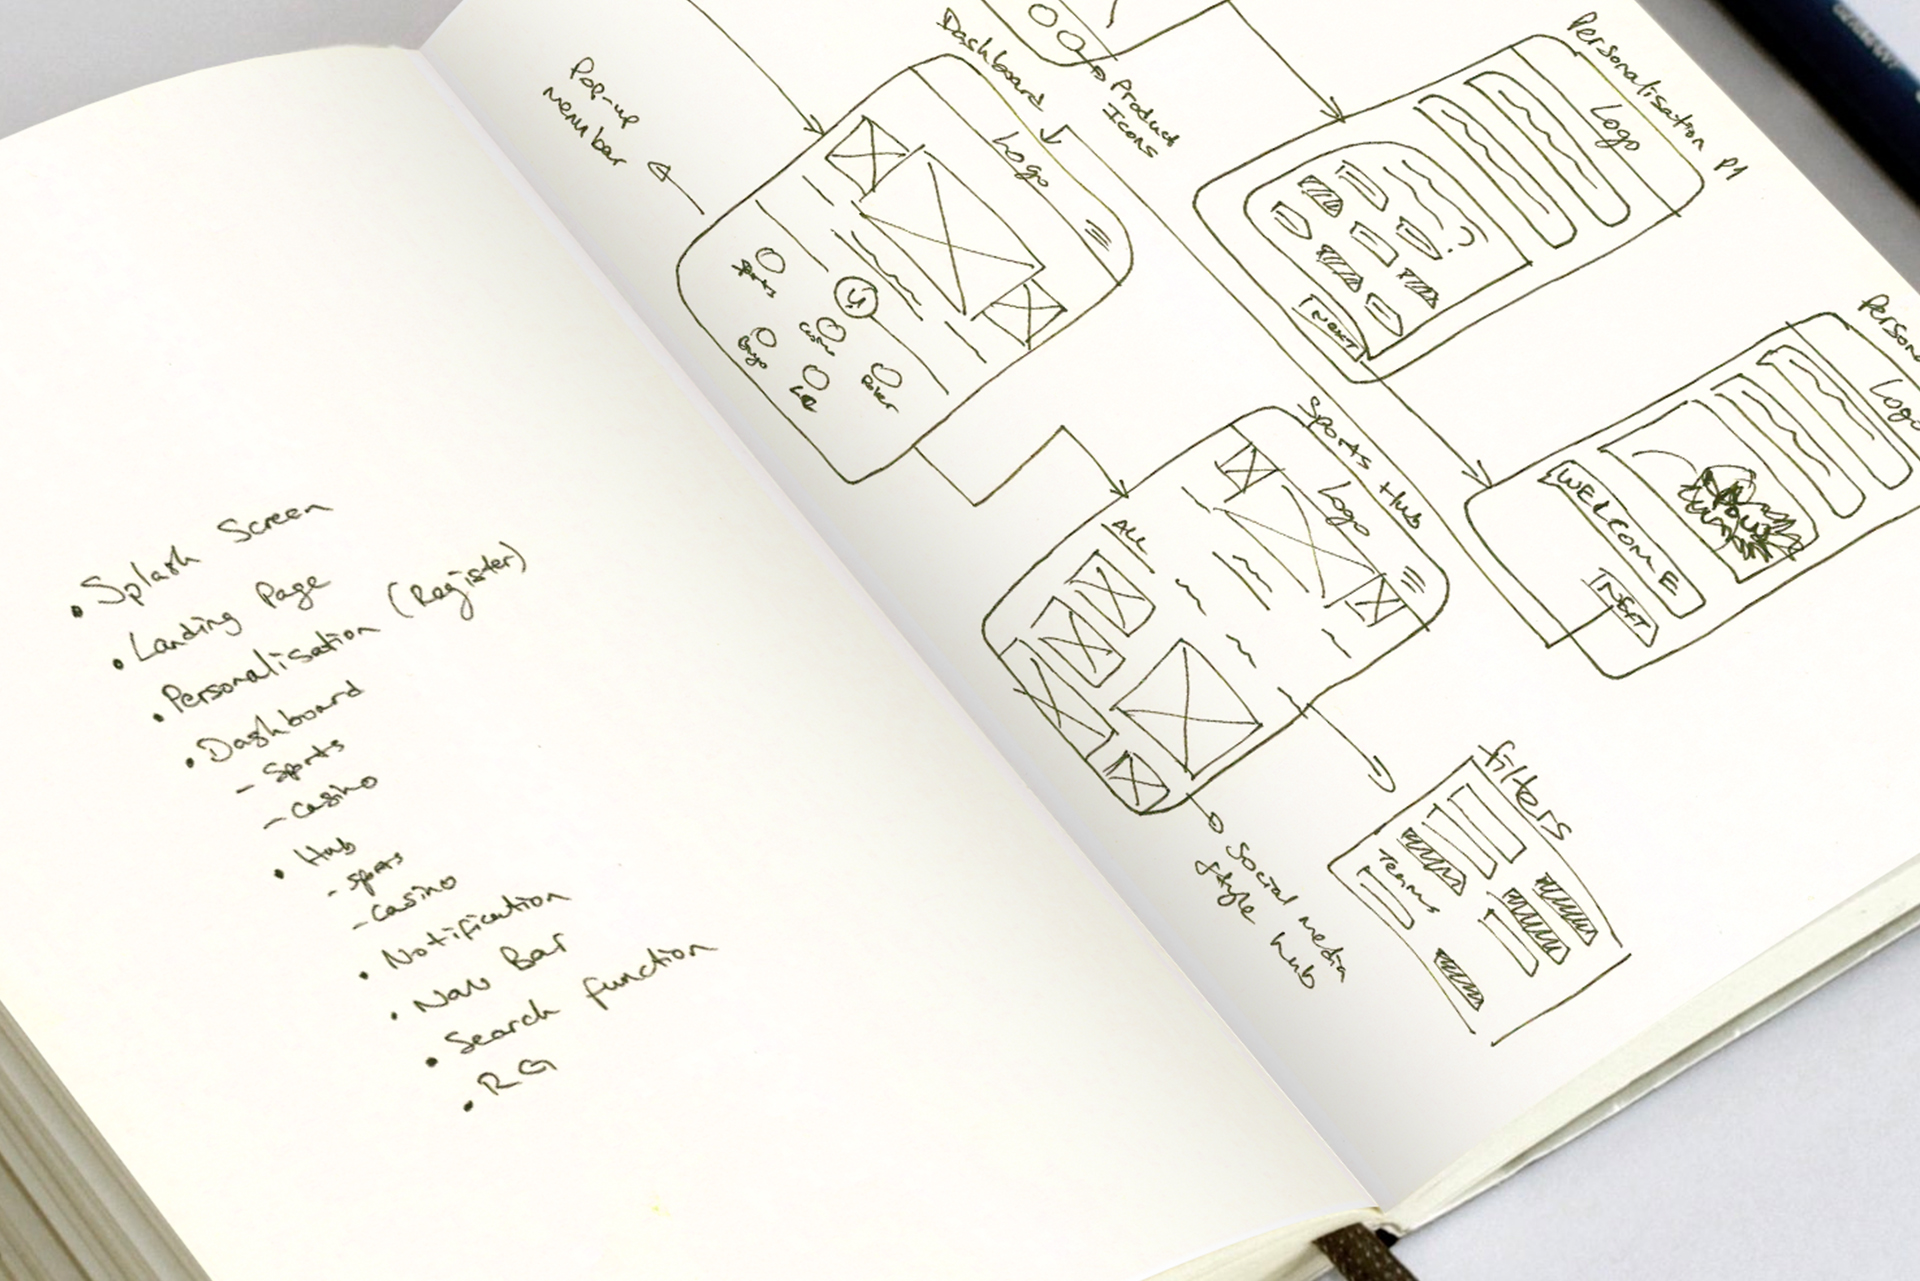 • Splash Screen
• Landing Page
• Personalisation (Register)
• Dashboard
- Sports
- Casino
• Hub
- Sports
- Casino
• Notification
• Nav Bar
• Search function
• RG
Pop-up
menu bar
Dashboard
Product
Icons
Logo
Sports
Casino
Bingo
Poker
Personalisation P1
Logo
?
NEXT
Logo
WELCOME
NEXT
Sports Hub
Logo
ALL
Social media
style hub
filters
Teams